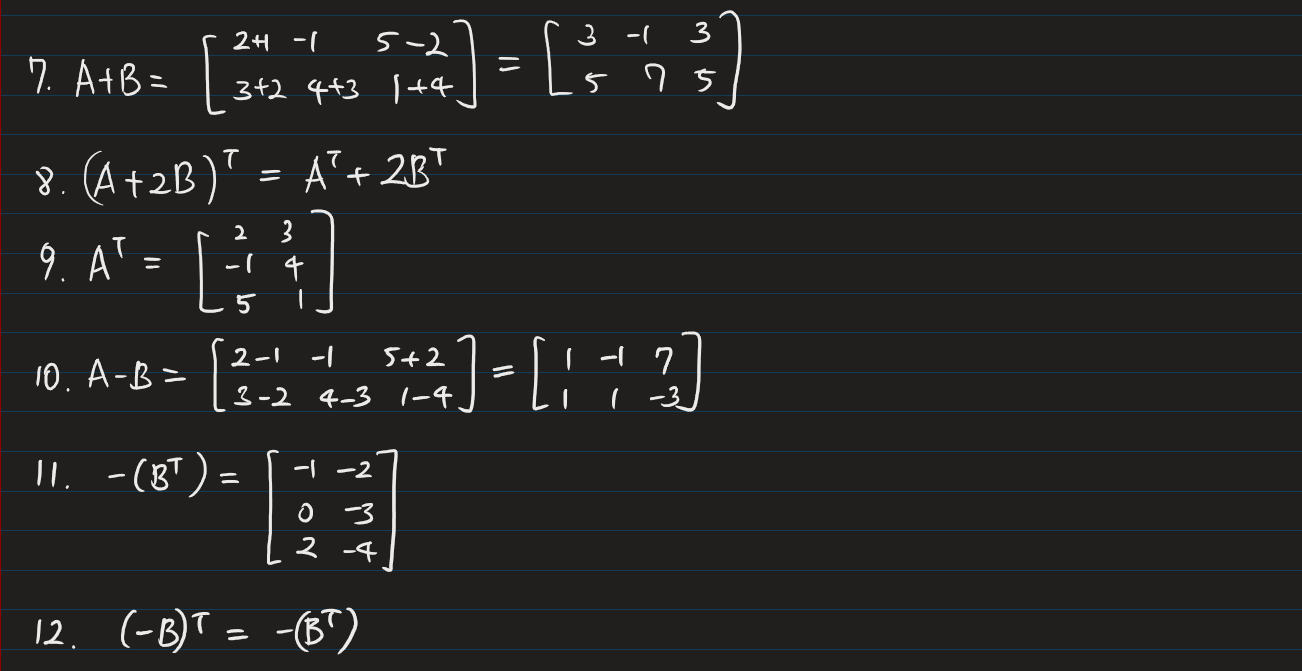 7. A+B = [2+1 -1 5-2; 3+2 4+3 1+4] = [3 -1 3; 5 7 5]
8. (A+2B)ᵀ = Aᵀ + 2Bᵀ
9. Aᵀ = [2 3; -1 4; 5 1]
10. A-B = [2-1 -1 5+2; 3-2 4-3 1-4] = [1 -1 7; 1 1 -3]
11. -(Bᵀ) = [-1 -2; 0 -3; 2 -4]
12. (-B)ᵀ = -(Bᵀ)